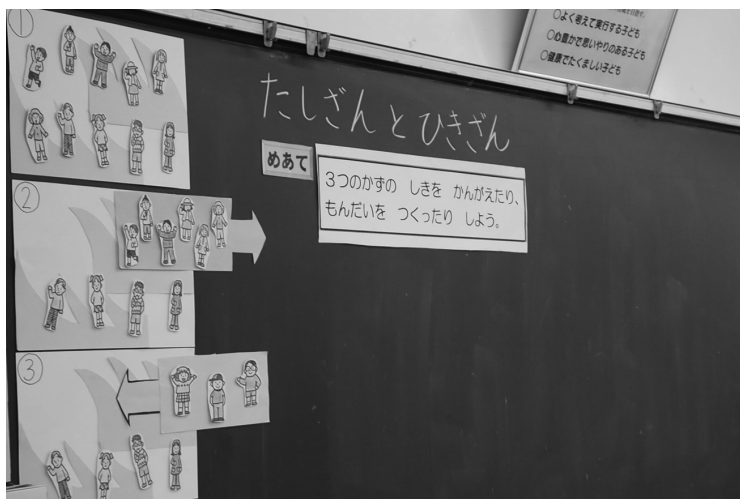 ○よく考えて実行する子ども
○心豊かで思いやりのある子ども
○健康でたくましい子ども
たしざん と ひきざん
めあて
3つのかずの しきを かんがえたり、
もんだいを つくったり しよう。
①
②
③